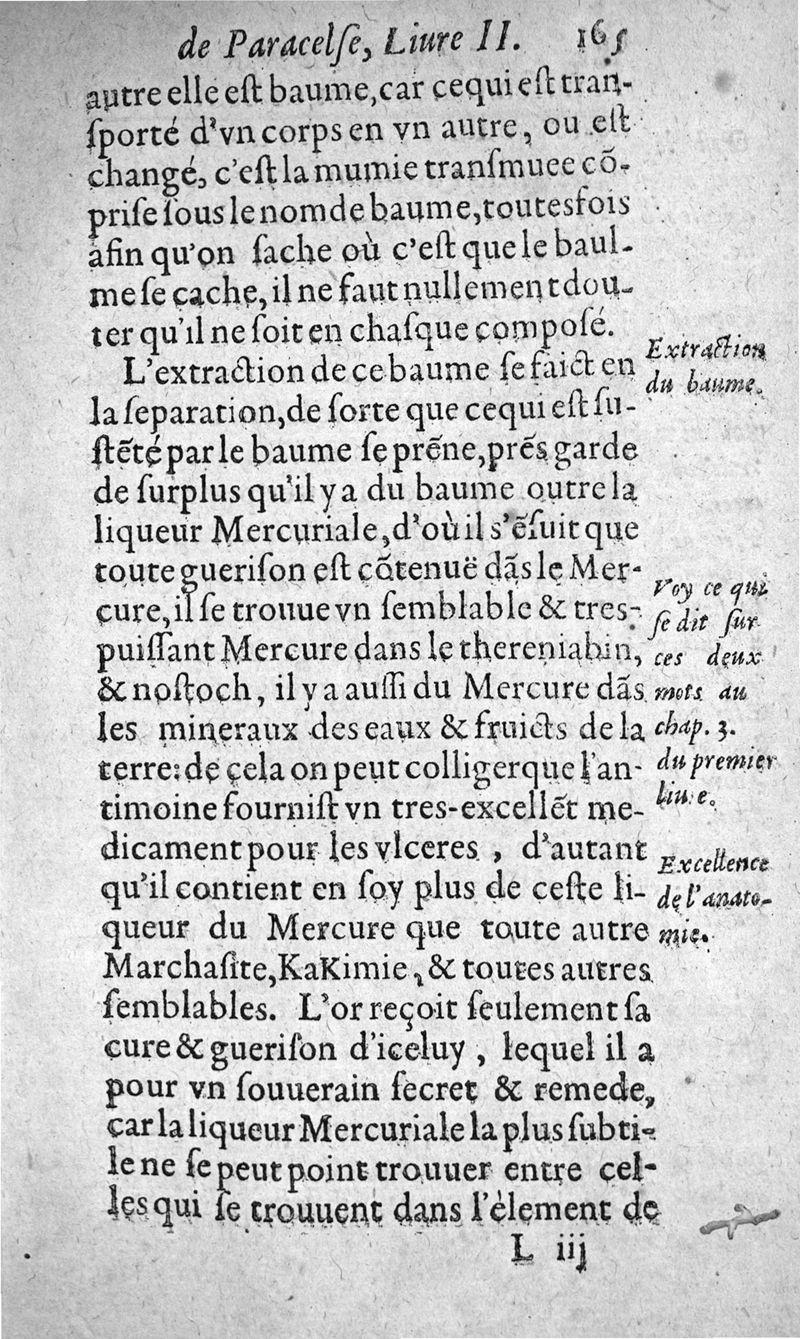 de Paracelſe, Liure II. 165
autre elle eſt baume, car cequi eſt tran-
ſporté d'vn corps en vn autre, ou eſt
changé, c'eſt la mumie tranſmuee cõ-
priſe ſous le nom de baume, toutesfois
afin qu'on ſache où c'eſt que le baul-
me ſe cache, il ne faut nullement dou-
ter qu'il ne ſoit en chaſque compoſé.
L'extraction de ce baume ſe faict en
la ſeparation, de ſorte que cequi eſt ſu-
ſtẽté par le baume ſe prẽne, prẽs garde
de ſurplus qu'il y a du baume outre la
liqueur Mercuriale, d'où il s'ẽſuit que
toute gueriſon eſt cõtenuë dãs le Mer-
cure, il ſe trouue vn ſemblable & tres-
puiſſant Mercure dans le thereniabin,
& noſtoch, il y a auſſi du Mercure dãs
les mineraux des eaux & fruicts de la
terre: de cela on peut colliger que l'an-
timoine fourniſt vn tres-excellẽt me-
dicament pour les vlceres, d'autant
qu'il contient en ſoy plus de ceſte li-
queur du Mercure que toute autre
Marchaſite, KaKimie, & toutes autres
ſemblables. L'or reçoit ſeulement ſa
cure & gueriſon d'iceluy, lequel il a
pour vn ſouuerain ſecret & remede,
car la liqueur Mercuriale la plus ſubti-
le ne ſe peut point trouuer entre cel-
les qui ſe trouuent dans l'element de
L iij
Extraction
du baume.
Voy ce qui
ſe dit ſur
ces deux
mots au
chap. 3.
du premier
liure.
Excellence
de l'anato-
mie.